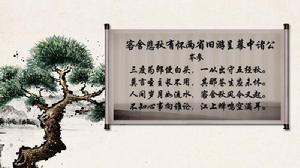 客舍悲秋有怀两省旧游呈幕中诸公
岑参
三度为郎便白头，一从出守五经秋。
莫言圣主长不用，其那苍生应未休。
人间岁月如流水，客舍秋风今又起。
不知心事向谁论，江上蝉鸣空满耳。